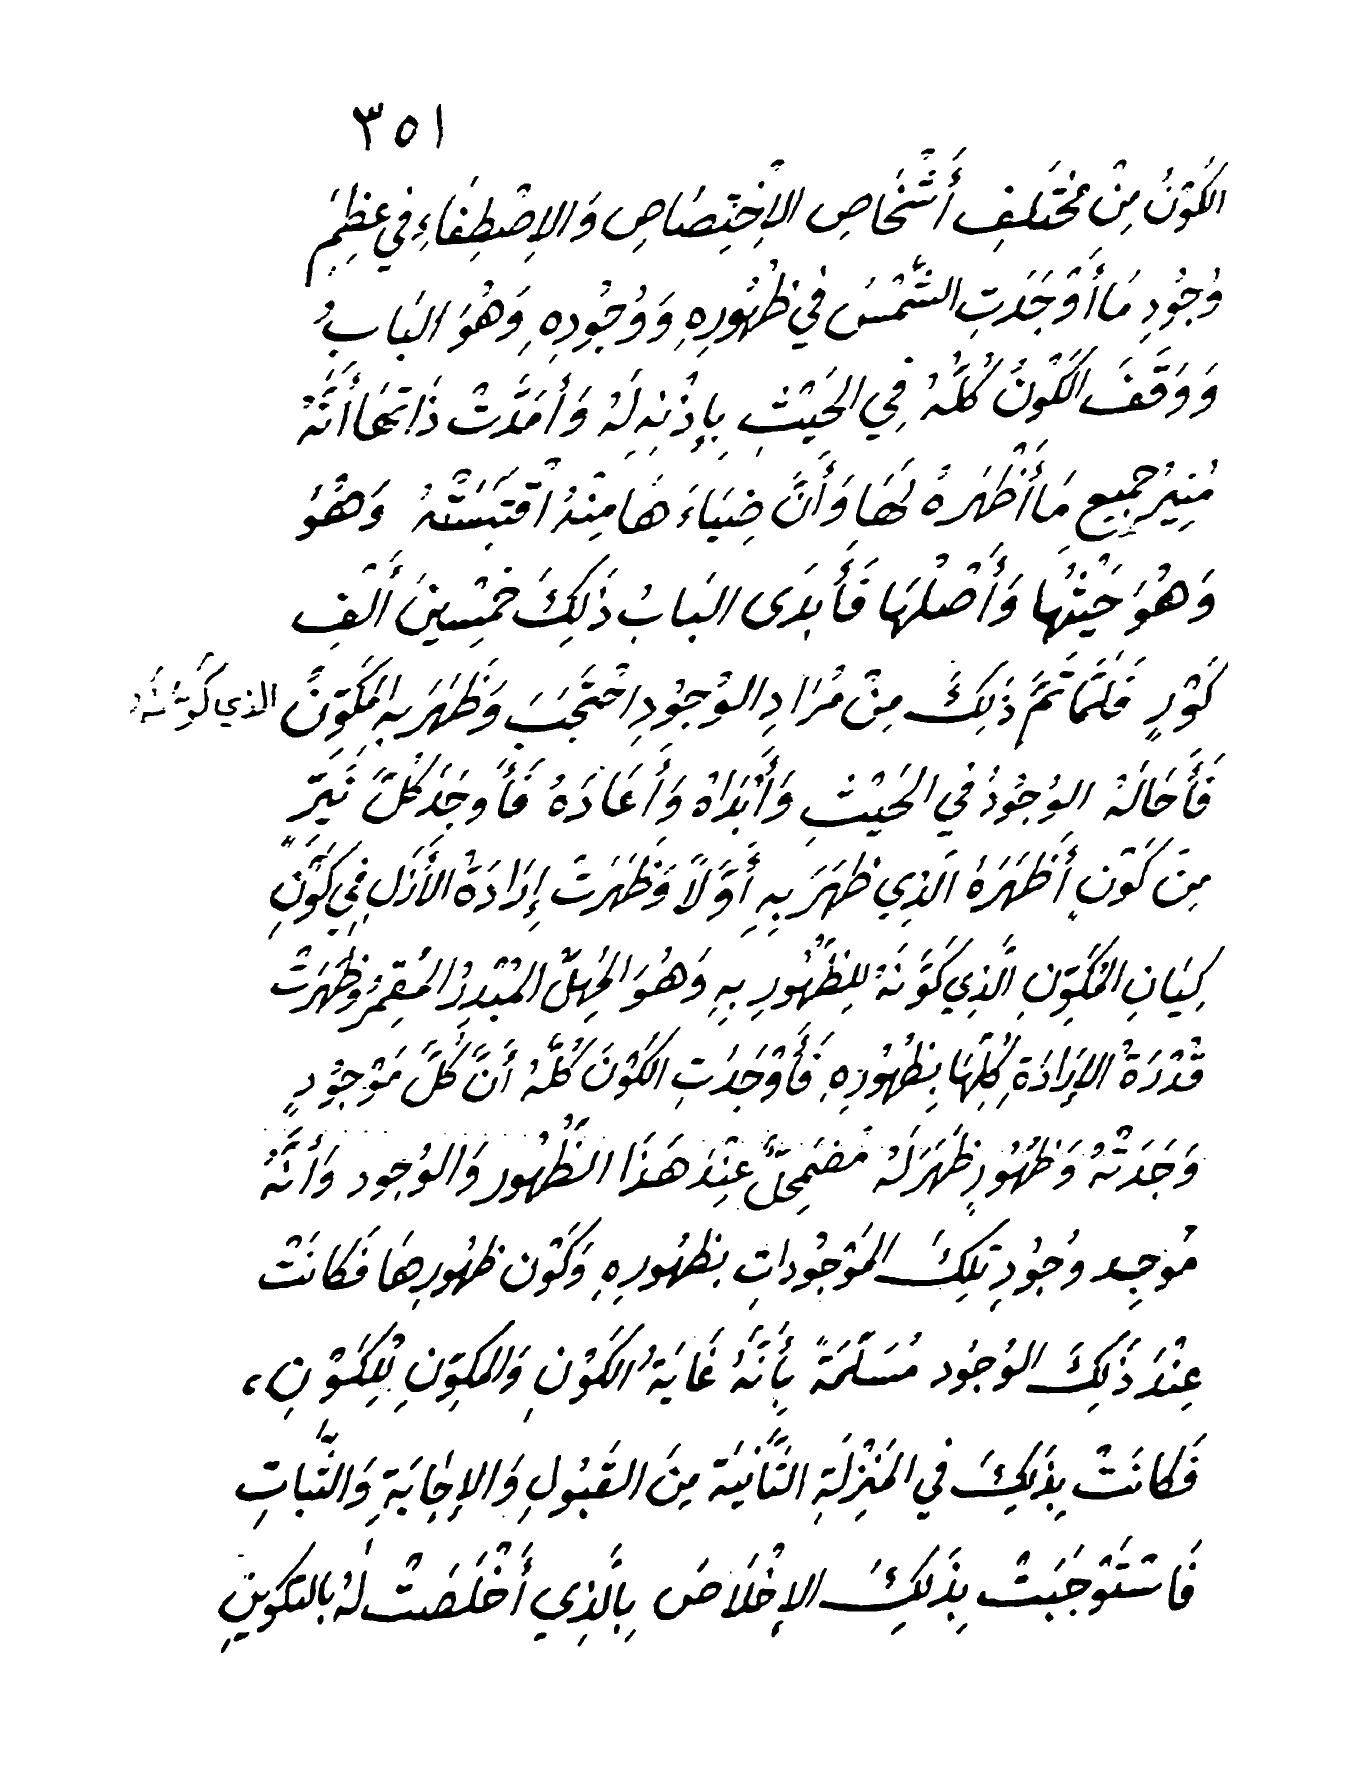 ٣٥١
الكَوْنُ مِنْ مُخْتَلِفِ أَشْخَاصِ الإِخْتِصَاصِ وَالإِصْطِفَاءِ فِي عِظَمِ
وُجُودِ مَا أَوْجَدَتِ الشَّمْسُ فِي ظُهُورِهِ وَوُجُودِهِ وَهُوَ البَابُ
وَوَقَفَ الكَوْنُ كُلُّهُ فِي الحَيْثِ بِإِذْنِهِ لَهُ وَأَمَدَّتْ ذَاتهَا أَنَّهُ
مُنِيرُ جَمِيعِ مَا أَظْهَرهُ لَهَا وَأَنَّ ضِيَاءَهَا مِنْهُ اقْتَبَسَتْهُ وَهُوَ
وَهُوَ حَيْثُهَا وَأَصْلُهَا فَأَبدَى البَابُ ذَلِكَ خَمْسِينَ أَلْفِ
كَوْرٍ فَلَمَّا تَمَّ ذَلِكَ مِنْ مُرَادِ الوُجُودِ احْتَجَبَ وَظَهَرَ بِهِ المُكَوِّنُ الذي كَوَّنَهُ
فَأَحَالَهُ الوُجُودُ فِي الحَيْثِ وَأَبْدَاهُ وَأَعَادَهُ فَأَوجَدَ كُلَّ نَيِّرٍ
مِنَ كَوْنٍ أَظْهَرَهُ الَّذِي ظَهَرَ بِهِ أَوَّلاً وَظَهَرَتْ إِرَادَةُ الأَزَلِ فِي كَوْنِ
كِيَانِ المُكَوِّنِ الَّذِي كَوَّنَهُ لِلظُّهُورِ بِهِ وَهُوَ المُهِلُّ المُبْدِرُ المُقْمِرُ وَظَهَرَتْ
قُدْرَةُ الإِرَادَةِ كُلِّهَا بِظُهُورِهِ فَأَوْجَدَتِ الكَوْنَ كُلَّهُ أَنَّ كُلَّ مَوْجُودٍ
وَجَدَتْهُ وَظُهُورٍ ظَهَرَ لَهُ مُضْمَحِلٌّ عِنْدَ هَذَا الظُّهُور وَالوُجُود وَأَنَّهُ
مُوجِد وُجُودِ تِلكَ المَوْجُودَاتِ بِظُهُورِهِ وَكَوْن ظُهُورِهَا فَكَانَتْ
عِنْدَ ذَلِكَ الوُجُود مُسَلِّمَةً بِأَنَّهُ غَايَةُ الكَوْنِ وَالمُكَوِّنِ لِلْكَوْنِ،
فَكَانَتْ بِذَلِكَ فِي المَنْزِلَةِ الثَّانِيَة مِنَ القَبُولِ وَالإِجَابَةِ وَالثَّبَاتِ
فَاسْتَوْجَبَتْ بِذَلِكَ الإِخْلَاصَ بِالَّذِي أَخْلَصَتْ لَهُ بالتكوينِ